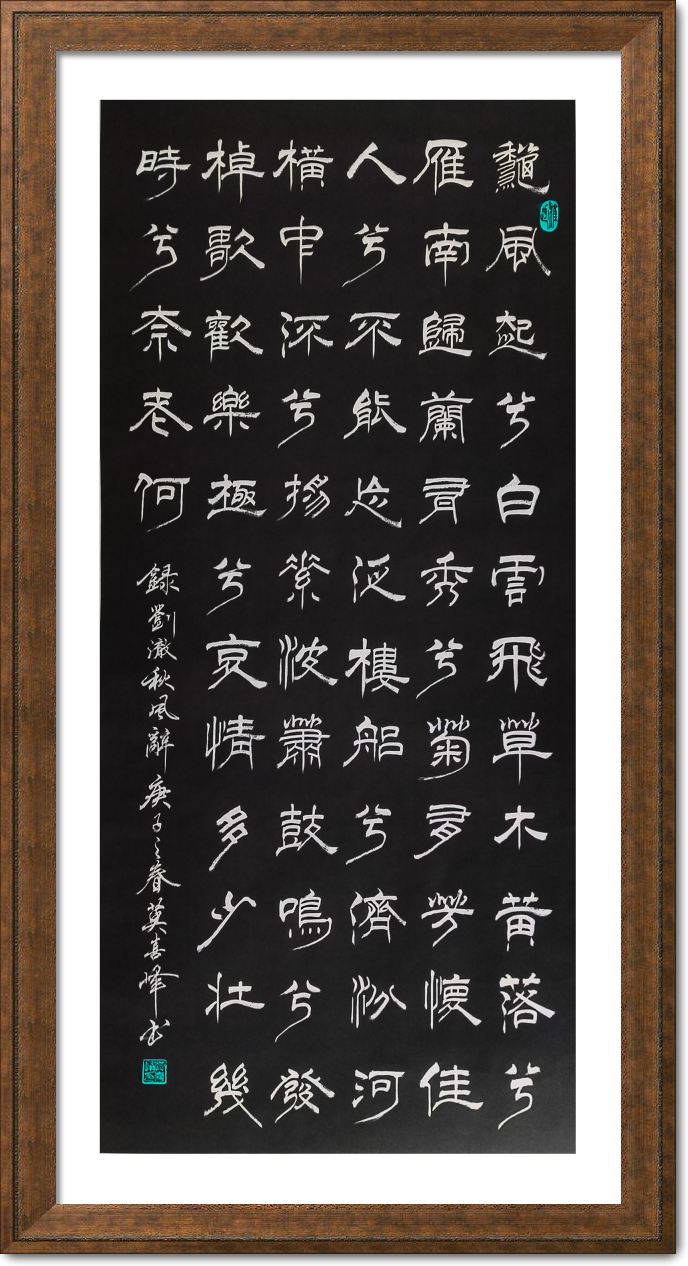 龝風起兮白雲飛草木黄落兮
雁南歸蘭有秀兮菊有芳懷佳
人兮不能忘泛樓船兮濟汾河
横中流兮揚素波簫鼓鳴兮發
棹歌歡樂極兮哀情多少壯幾
時兮奈老何
錄劉澈秋風辭庚子之春莫喜峰书